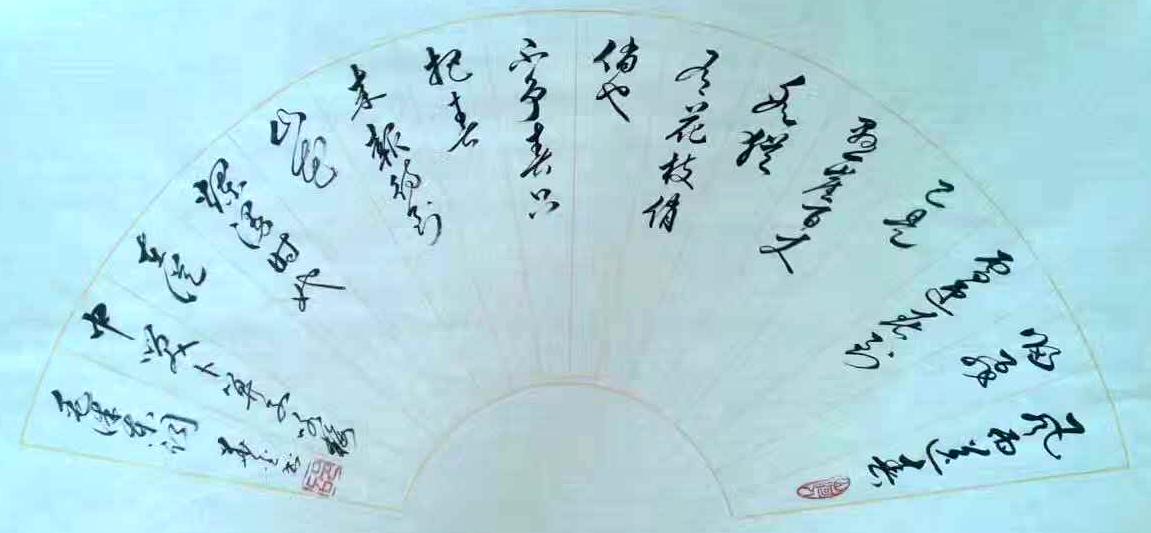 风雨送春
归飞
雪迎春到
已是
悬崖百丈
冰犹
有花枝俏
俏也
不争春只
把春
来报待到
山花
烂漫时她
在丛
中笑卜算子咏梅
毛泽东词